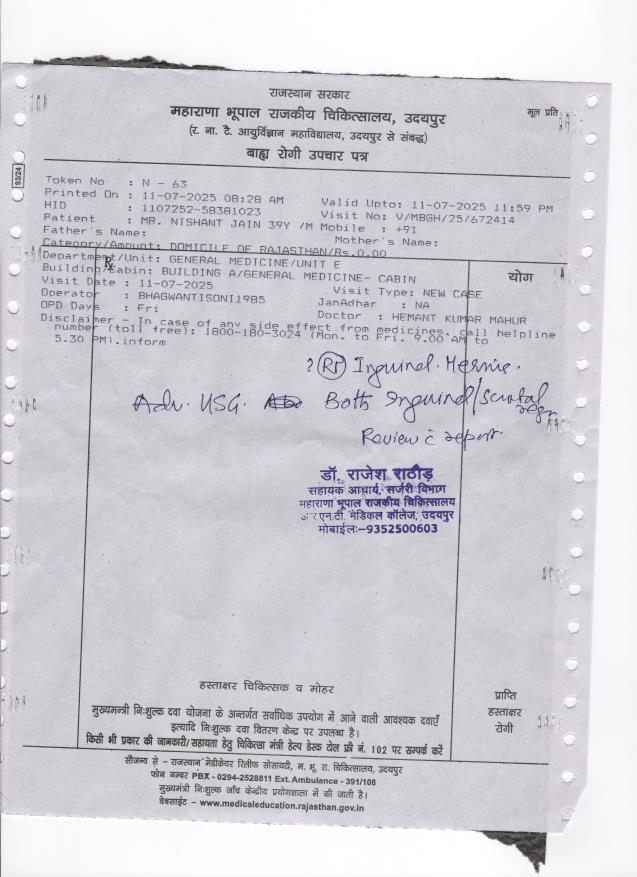 राजस्थान सरकार
महाराणा भूपाल राजकीय चिकित्सालय, उदयपुर
मूल प्रति
(र. ना. टै. आयुर्विज्ञान महाविद्यालय, उदयपुर से संबद्ध)
बाह्य रोगी उपचार पत्र
93/24
Token No : N - 63
Printed On : 11-07-2025 08:28 AM Valid Upto: 11-07-2025 11:59 PM
HID : 1107252-58381023 Visit No: V/MBGH/25/672414
Patient : MR. NISHANT JAIN 39Y /M Mobile : +91
Father's Name: Mother's Name:
Category/Amount: DOMICILE OF RAJASTHAN/Rs.0.00
Department/Unit: GENERAL MEDICINE/UNIT E
Rx
योग
Building/Cabin: BUILDING A/GENERAL MEDICINE- CABIN
Visit Date : 11-07-2025 Visit Type: NEW CASE
Operator : BHAGWANTISONI1985 JanAdhar : NA
OPD Days : Fri Doctor : HEMANT KUMAR MAHUR
Disclaimer - In case of any side effect from medicines, call helpline
number (toll free): 1800-180-3024 (Mon. to Fri. 9.00 AM to
5.30 PM).inform
? Rt Inguinal Hernia.
Adv. USG. Both Inguinal/Scrotal
region
Review c̄ report.
डॉ. राजेश राठौड़
सहायक आचार्य, सर्जरी विभाग
महाराणा भूपाल राजकीय चिकित्सालय
आर.एन.टी. मेडिकल कॉलेज, उदयपुर
मोबाईलः-9352500603
हस्ताक्षर चिकित्सक व मोहर
प्राप्ति
हस्ताक्षर
रोगी
मुख्यमन्त्री निःशुल्क दवा योजना के अन्तर्गत सर्वाधिक उपयोग में आने वाली आवश्यक दवाएँ
इत्यादि निःशुल्क दवा वितरण केन्द्र पर उपलब्ध है।
किसी भी प्रकार की जानकारी/सहायता हेतु चिकित्सा मंत्री हेल्प डेस्क टोल फ्री नं. 102 पर सम्पर्क करें
सौजन्य से - राजस्थान मेडीकेयर रिलीफ सोसायटी, म. भू. रा. चिकित्सालय, उदयपुर
फोन नम्बर PBX - 0294-2528811 Ext. Ambulance - 391/108
मुख्यमंत्री निःशुल्क जाँच केन्द्रीय प्रयोगशाला में की जाती है।
वेबसाईट - www.medicaleducation.rajasthan.gov.in